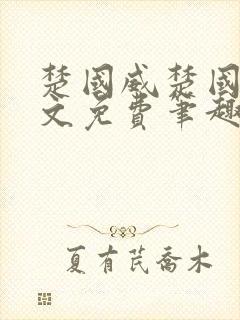 楚國威楚國
文免費筆趣
夏有芪喬木